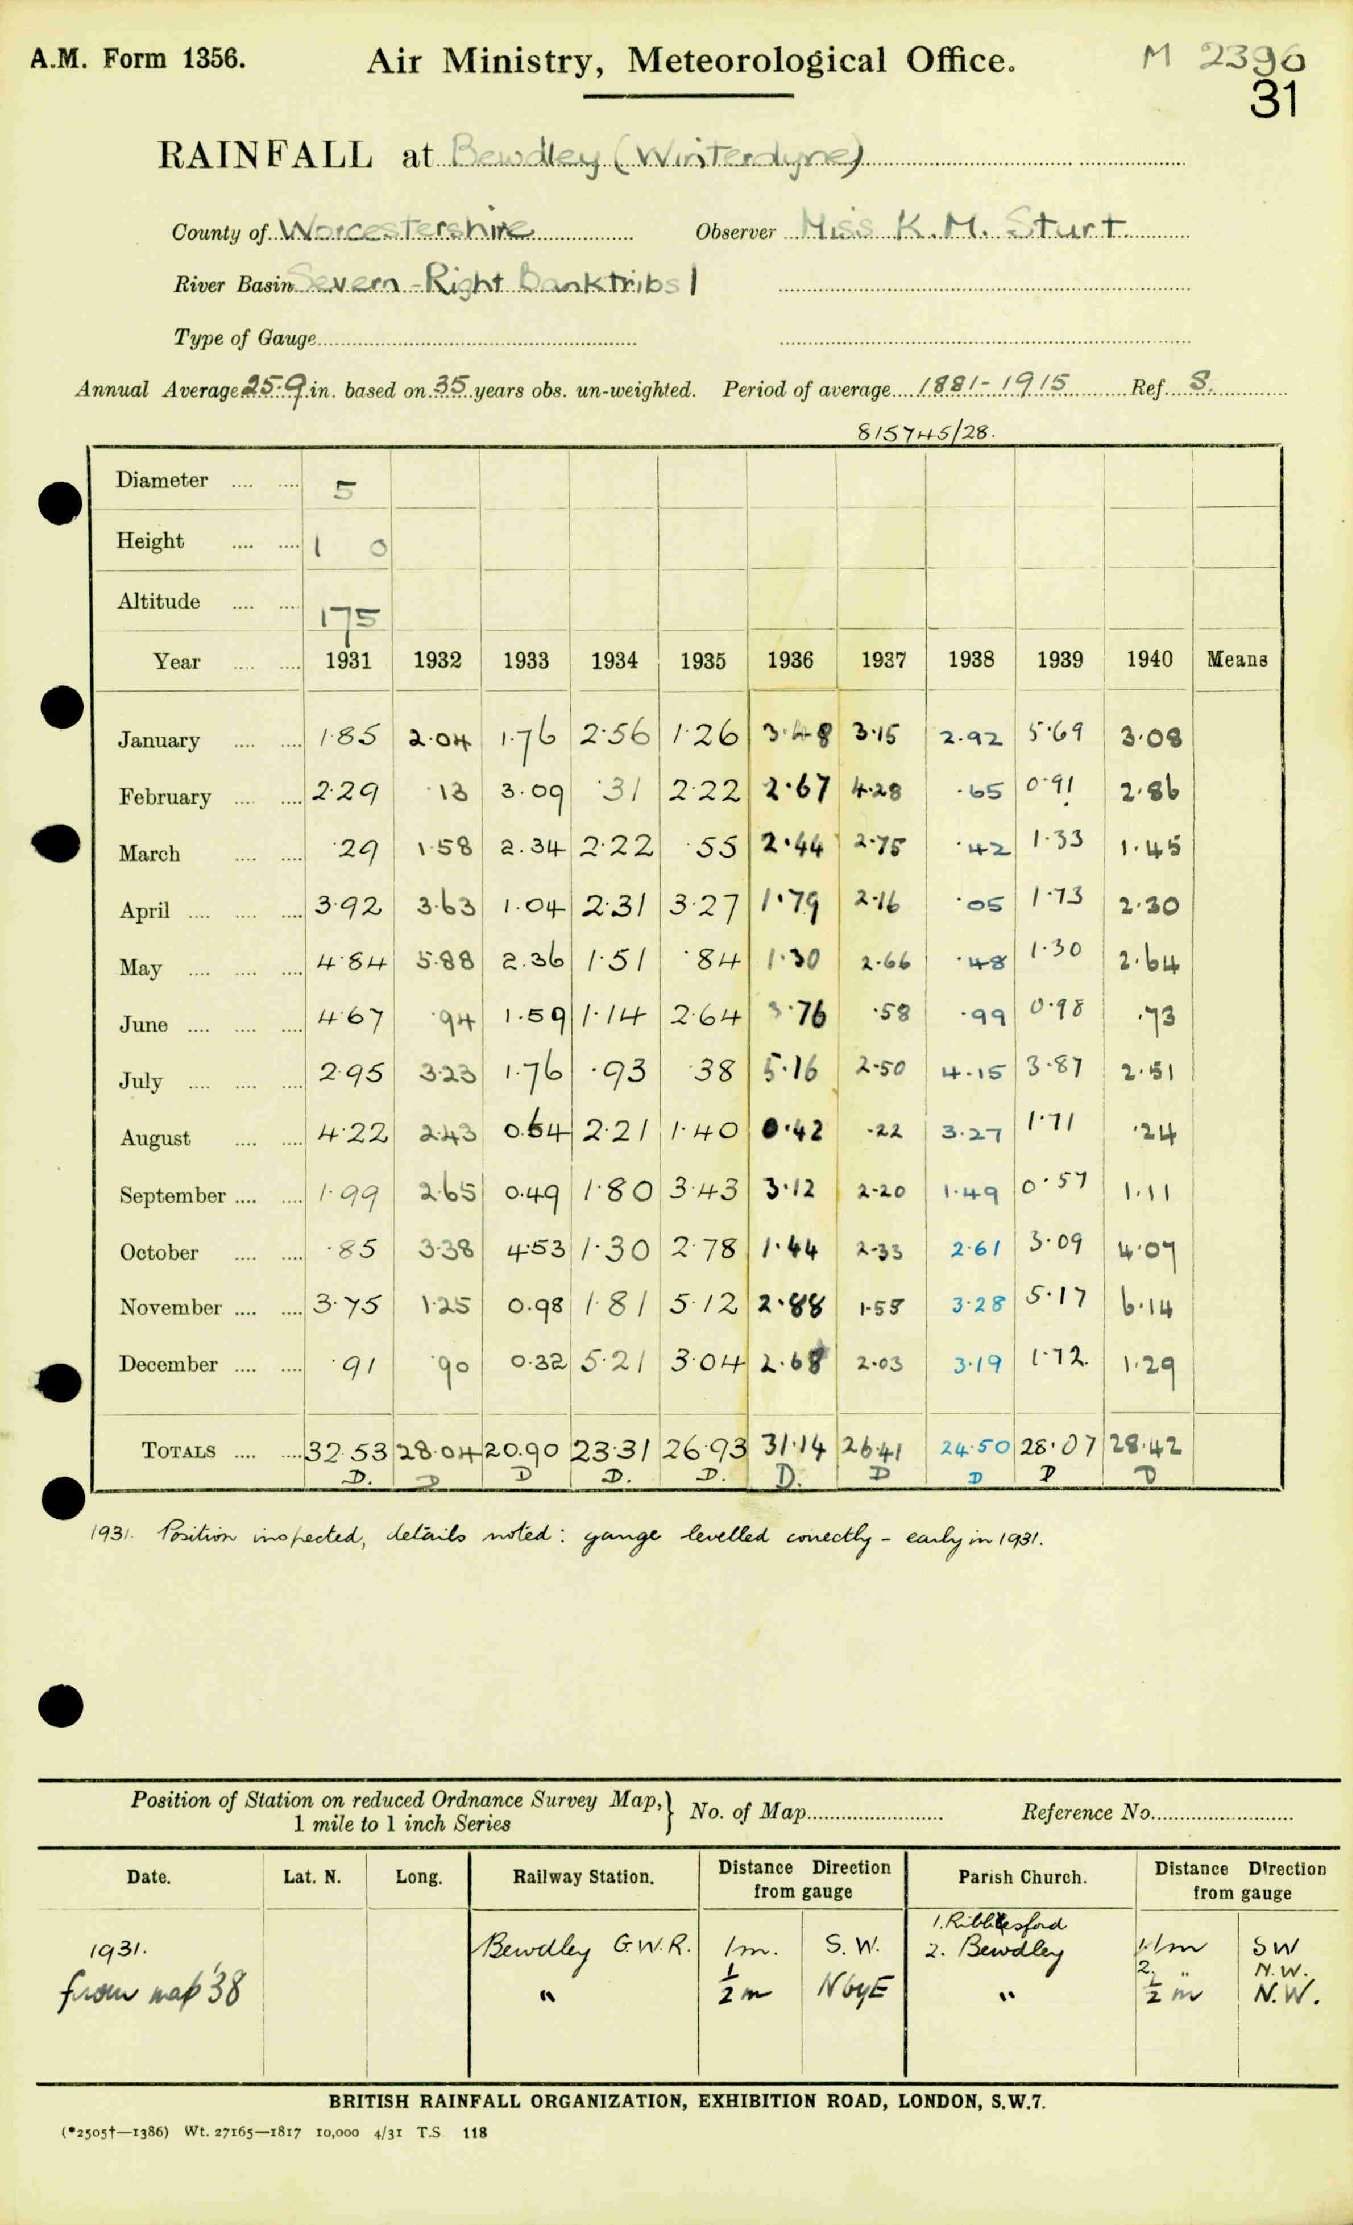 A.M. Form 1356. Air Ministry, Meteorological Office. M 2396
31
RAINFALL at Bewdley (Winterdyne)
County of Worcestershire Observer Miss K.M. Sturt
River Basin Severn - Right Bank tribs 1
Type of Gauge
Annual Average 25.9 in. based on 35 years obs. un-weighted. Period of average 1881-1915 Ref. S.
815745/28.
Diameter 5
Height 1 0
Altitude 175
Year 1931 1932 1933 1934 1935 1936 1937 1938 1939 1940 Means
January 1.85 2.04 1.76 2.56 1.26 3.48 3.15 2.92 5.69 3.08
February 2.29 .13 3.09 .31 2.22 2.67 4.28 .65 0.91 2.86
March .29 1.58 2.34 2.22 .55 2.44 2.75 .42 1.33 1.45
April 3.92 3.63 1.04 2.31 3.27 1.79 2.16 .05 1.73 2.30
May 4.84 5.88 2.36 1.51 .84 1.30 2.66 .48 1.30 2.64
June 4.67 .94 1.59 1.14 2.64 3.76 .58 .99 0.98 .73
July 2.95 3.23 1.76 .93 .38 5.16 2.50 4.15 3.87 2.51
August 4.22 2.43 0.64 2.21 1.40 0.42 .22 3.27 1.71 .24
September 1.99 2.65 0.49 1.80 3.43 3.12 2.20 1.49 0.57 1.11
October .85 3.38 4.53 1.30 2.78 1.44 2.33 2.61 3.09 4.07
November 3.75 1.25 0.98 1.81 5.12 2.88 1.55 3.28 5.17 6.14
December .91 .90 0.32 5.21 3.04 2.68 2.03 3.19 1.72 1.29
TOTALS 32.53 28.04 20.90 23.31 26.93 31.14 26.41 24.50 28.07 28.42
D. D D D. D. D. D D D D
1931. Position inspected, details noted: gauge levelled correctly - early in 1931.
Position of Station on reduced Ordnance Survey Map, } No. of Map Reference No.
1 mile to 1 inch Series
Date. Lat. N. Long. Railway Station. Distance Direction from gauge Parish Church. Distance Direction from gauge
1. Ribbesford
1931. Bewdley G.W.R. 1m. S.W. 2. Bewdley 1. 1m SW
2. " N.W.
from map '38 " ½ m N by E " ½ m N.W.
BRITISH RAINFALL ORGANIZATION, EXHIBITION ROAD, LONDON, S.W.7.
(*2505†—1386) Wt. 27165—1817 10,000 4/31 T.S. 118